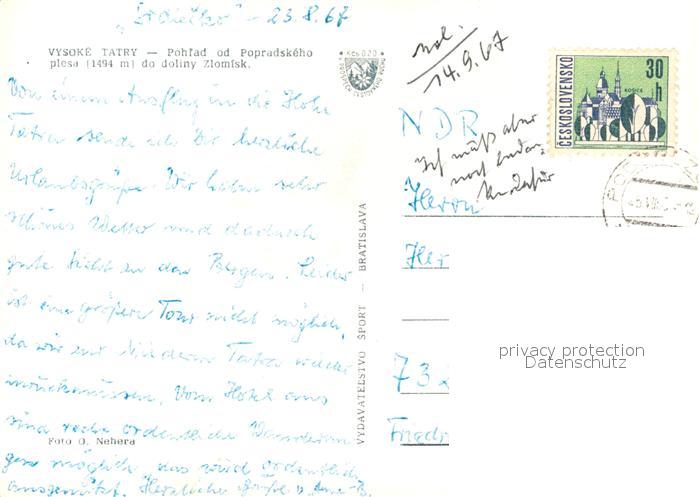 "Srdiečko" - 23.8.67
VYSOKÉ TATRY — Pohľad od Popradského
plesa (1494 m) do doliny Zlomísk.
Von einem Ausflug in die Hohe
Tatra sende ich Dir herzliche
Urlaubsgrüße. Wir haben sehr
schönes Wetter und dadurch
gute Sicht an den Bergen. Leider
ist eine größere Tour nicht möglich,
da wir zur Niederen Tatra wieder
zurückmüssen. Vom Hotel aus
sind recht ordentliche Wanderun
Foto O. Nehera
gen möglich, das wird ordentlich
ausgenützt. Herzliche Grüße
VYDAVATEĽSTVO ŠPORT — BRATISLAVA
Kčs 0,20
14.9.67
ČESKOSLOVENSKO
30 h
KOŠICE
NDR
Ich muß aber
noch
Herrn
Her
73
Friedr
privacy protection
Datenschutz